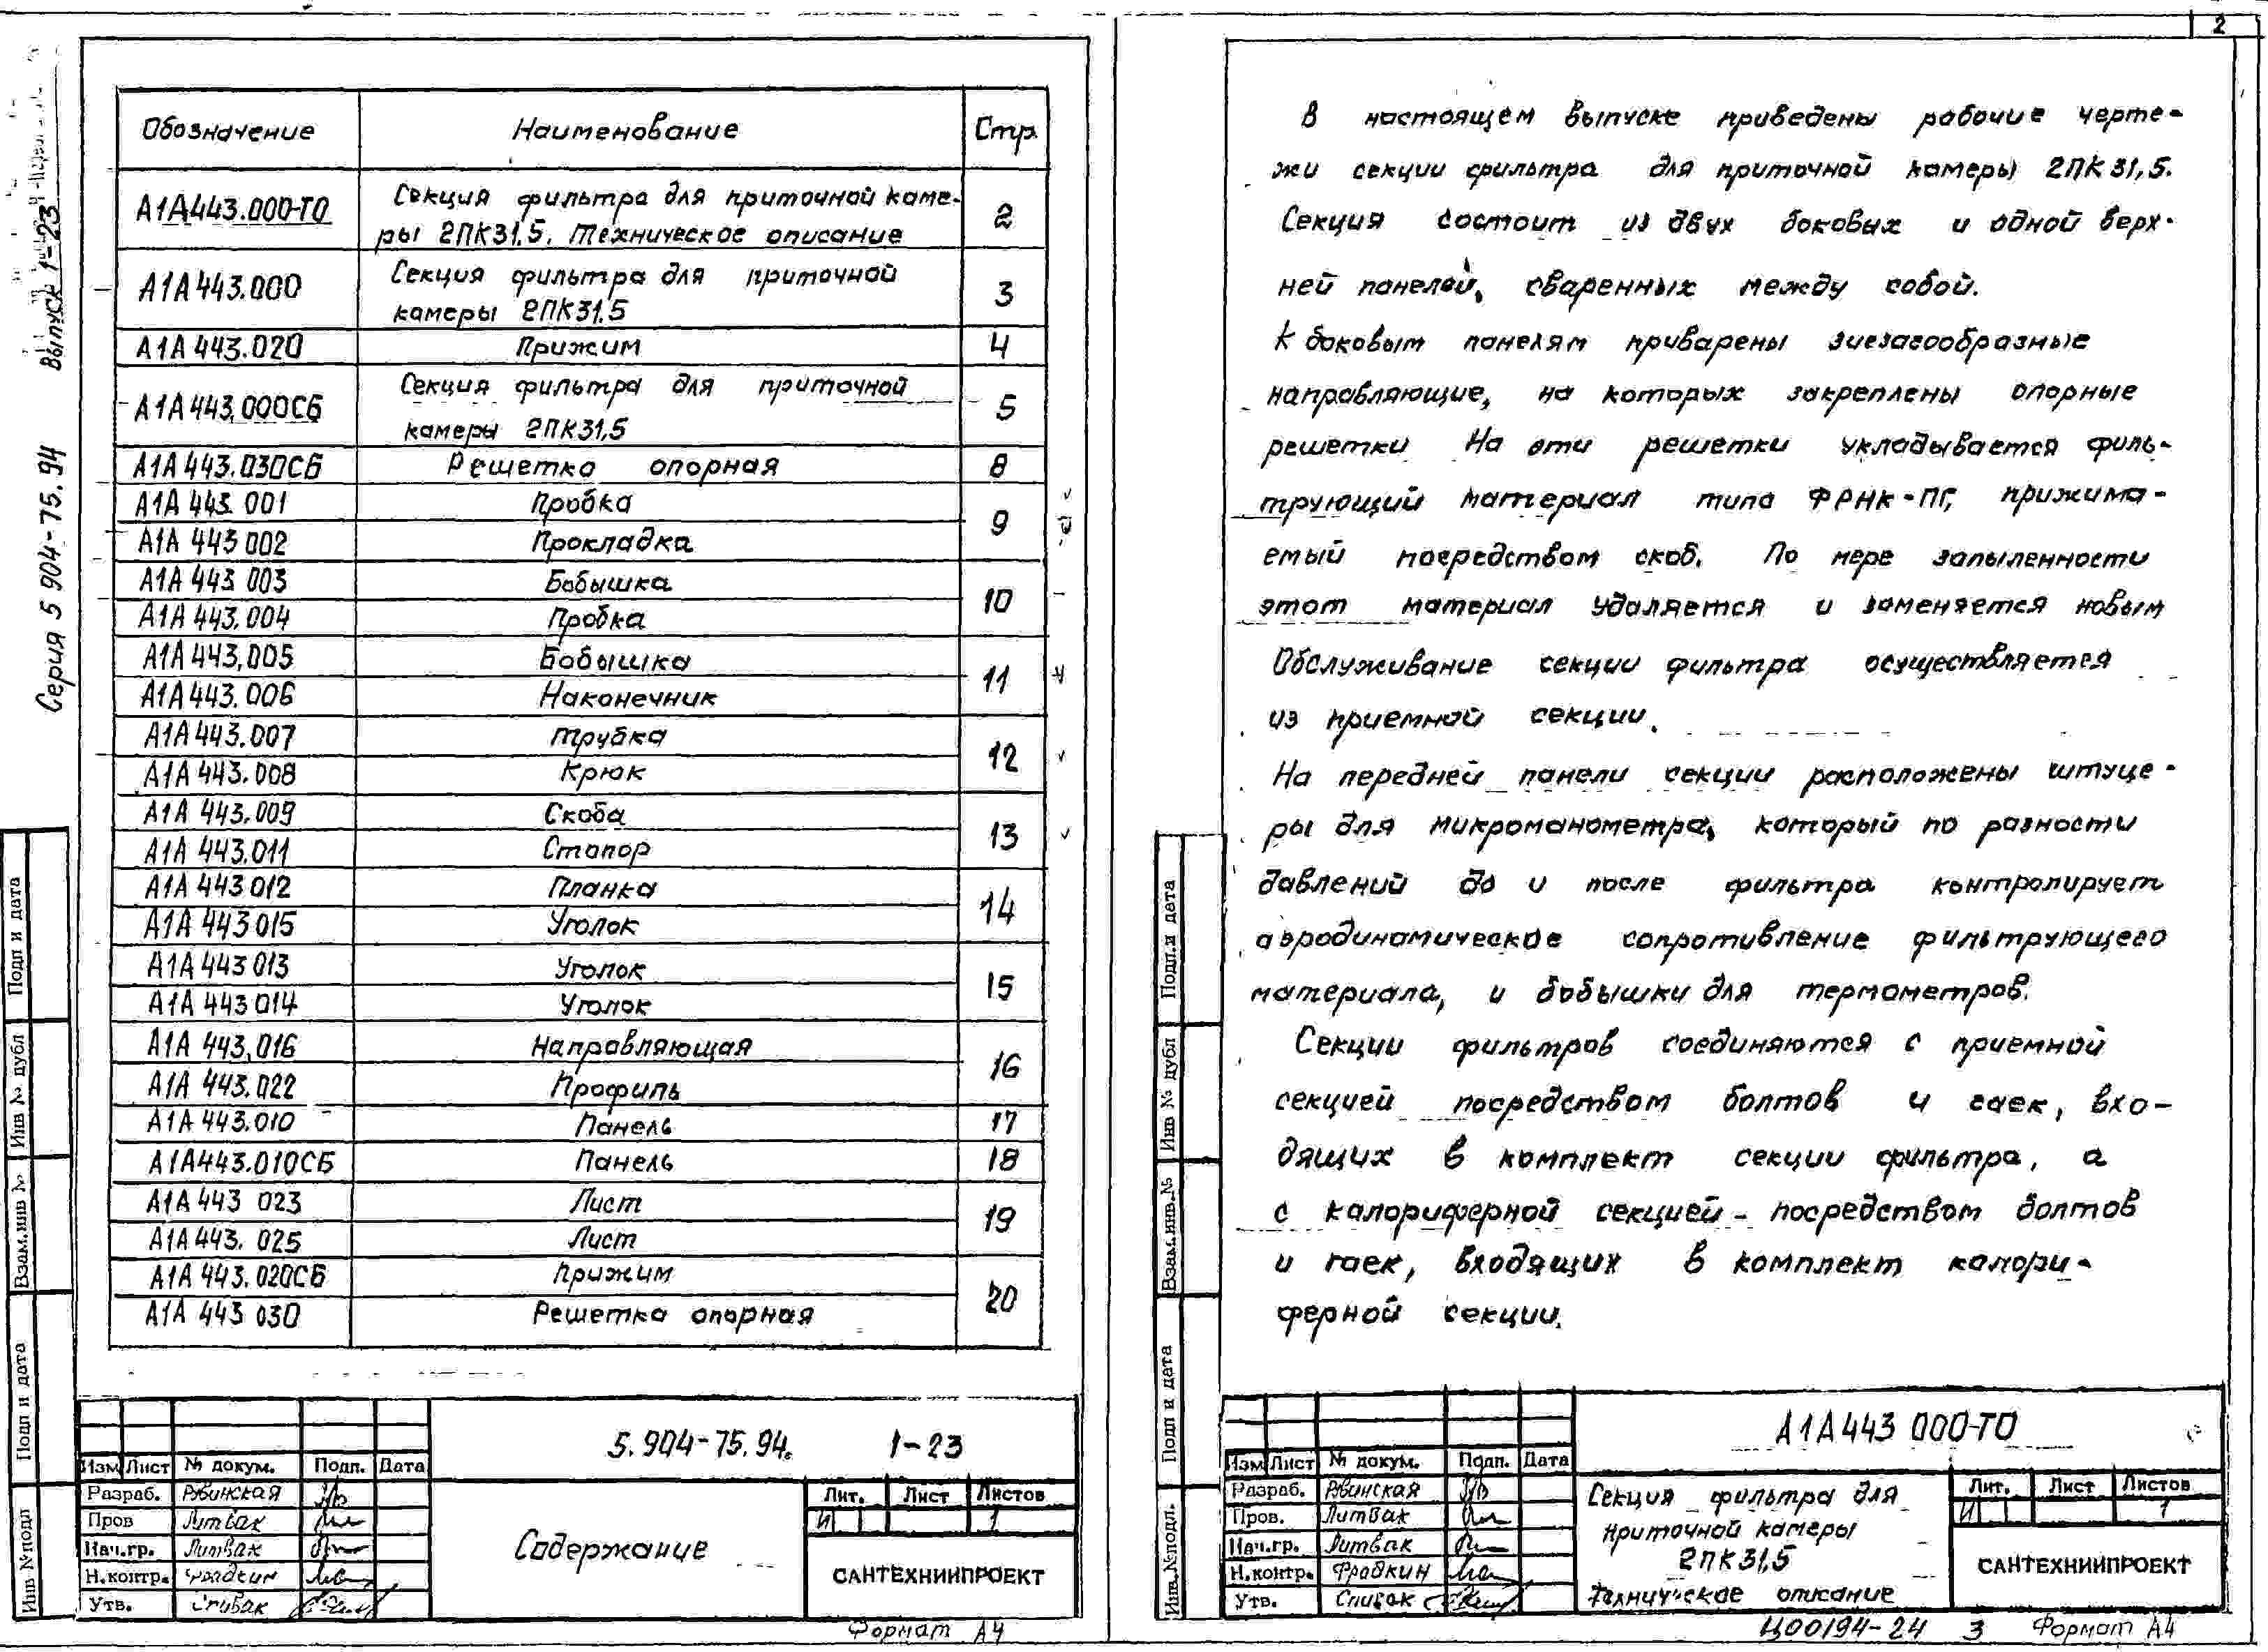 2
Серия 5 904-75.94 Выпуск 1-23
Обозначение Наименование Стр.
А1А443.000-ТО Секция фильтра для приточной каме-
ры 2ПК31,5. Техническое описание 2
А1А443.000 Секция фильтра для приточной
камеры 2ПК31.5 3
А1А443.020 Прижим 4
А1А443.000СБ Секция фильтра для приточной
камеры 2ПК31,5 5
А1А443.030СБ Решетка опорная 8
А1А443.001 Пробка 9
А1А 443 002 Прокладка
А1А 443 003 Бобышка 10
А1А 443.004 Пробка
А1А443,005 Бобышка 11
А1А443.006 Наконечник
А1А443.007 Трубка 12
А1А443.008 Крюк
А1А 443.009 Скоба 13
А1А 443.011 Стопор
А1А 443 012 Планка 14
А1А 443 015 Уголок
А1А 443 013 Уголок 15
А1А 443 014 Уголок
А1А 443,016 Направляющая 16
А1А 443.022 Профиль
А1А 443.010 Панель 17
А1А443.010СБ Панель 18
А1А 443 023 Лист 19
А1А443. 025 Лист
А1А 443.020СБ Прижим 20
А1А 443 030 Решетка опорная
Подп и дата
Инв № дубл
Взам.инв №
Подп и дата
Инв №подл
5.904-75.94. 1-23
Изм Лист № докум. Подп. Дата
Разраб. Рувинская
Пров Литвак
Нач.гр. Литвак
Н.контр. Фрадкин
Утв. Спивак
Содержание
Лит. Лист Листов
И 1
САНТЕХНИИПРОЕКТ
Формат А4
В настоящем выпуске приведены рабочие черте-
жи секции фильтра для приточной камеры 2ПК31,5.
Секция состоит из двух боковых и одной верх-
ней панелей, сваренных между собой.
К боковым панелям приварены зигзагообразные
направляющие, на которых закреплены опорные
решетки На эти решетки укладывается филь-
трующий материал типа ФРНК-ПГ, прижима-
емый посредством скоб. По мере запыленности
этот материал удаляется и заменяется новым
Обслуживание секции фильтра осуществляется
из приемной секции.
На передней панели секции расположены штуце-
ры для микроманометра, который по разности
давлений до и после фильтра контролирует
аэродинамическое сопротивление фильтрующего
материала, и бобышки для термометров.
Секции фильтров соединяются с приемной
секцией посредством болтов и гаек, вхо-
дящих в комплект секции фильтра, а
с калориферной секцией - посредством болтов
и гаек, входящих в комплект калори-
ферной секции.
Подп.и дата
Инв № дубл
Взам.инв.№
Подп и дата
Инв.№подл.
А1А443 000-ТО
Изм Лист № докум. Подп. Дата
Разраб. Рувинская
Пров. Литвак
Нач.гр. Литвак
Н.контр. Фрадкин
Утв. Спивак
Секция фильтра для
приточной камеры
2ПК31,5
Техническое описание
Лит. Лист Листов
И 1
САНТЕХНИИПРОЕКТ
Ц00194-24 3 Формат А4